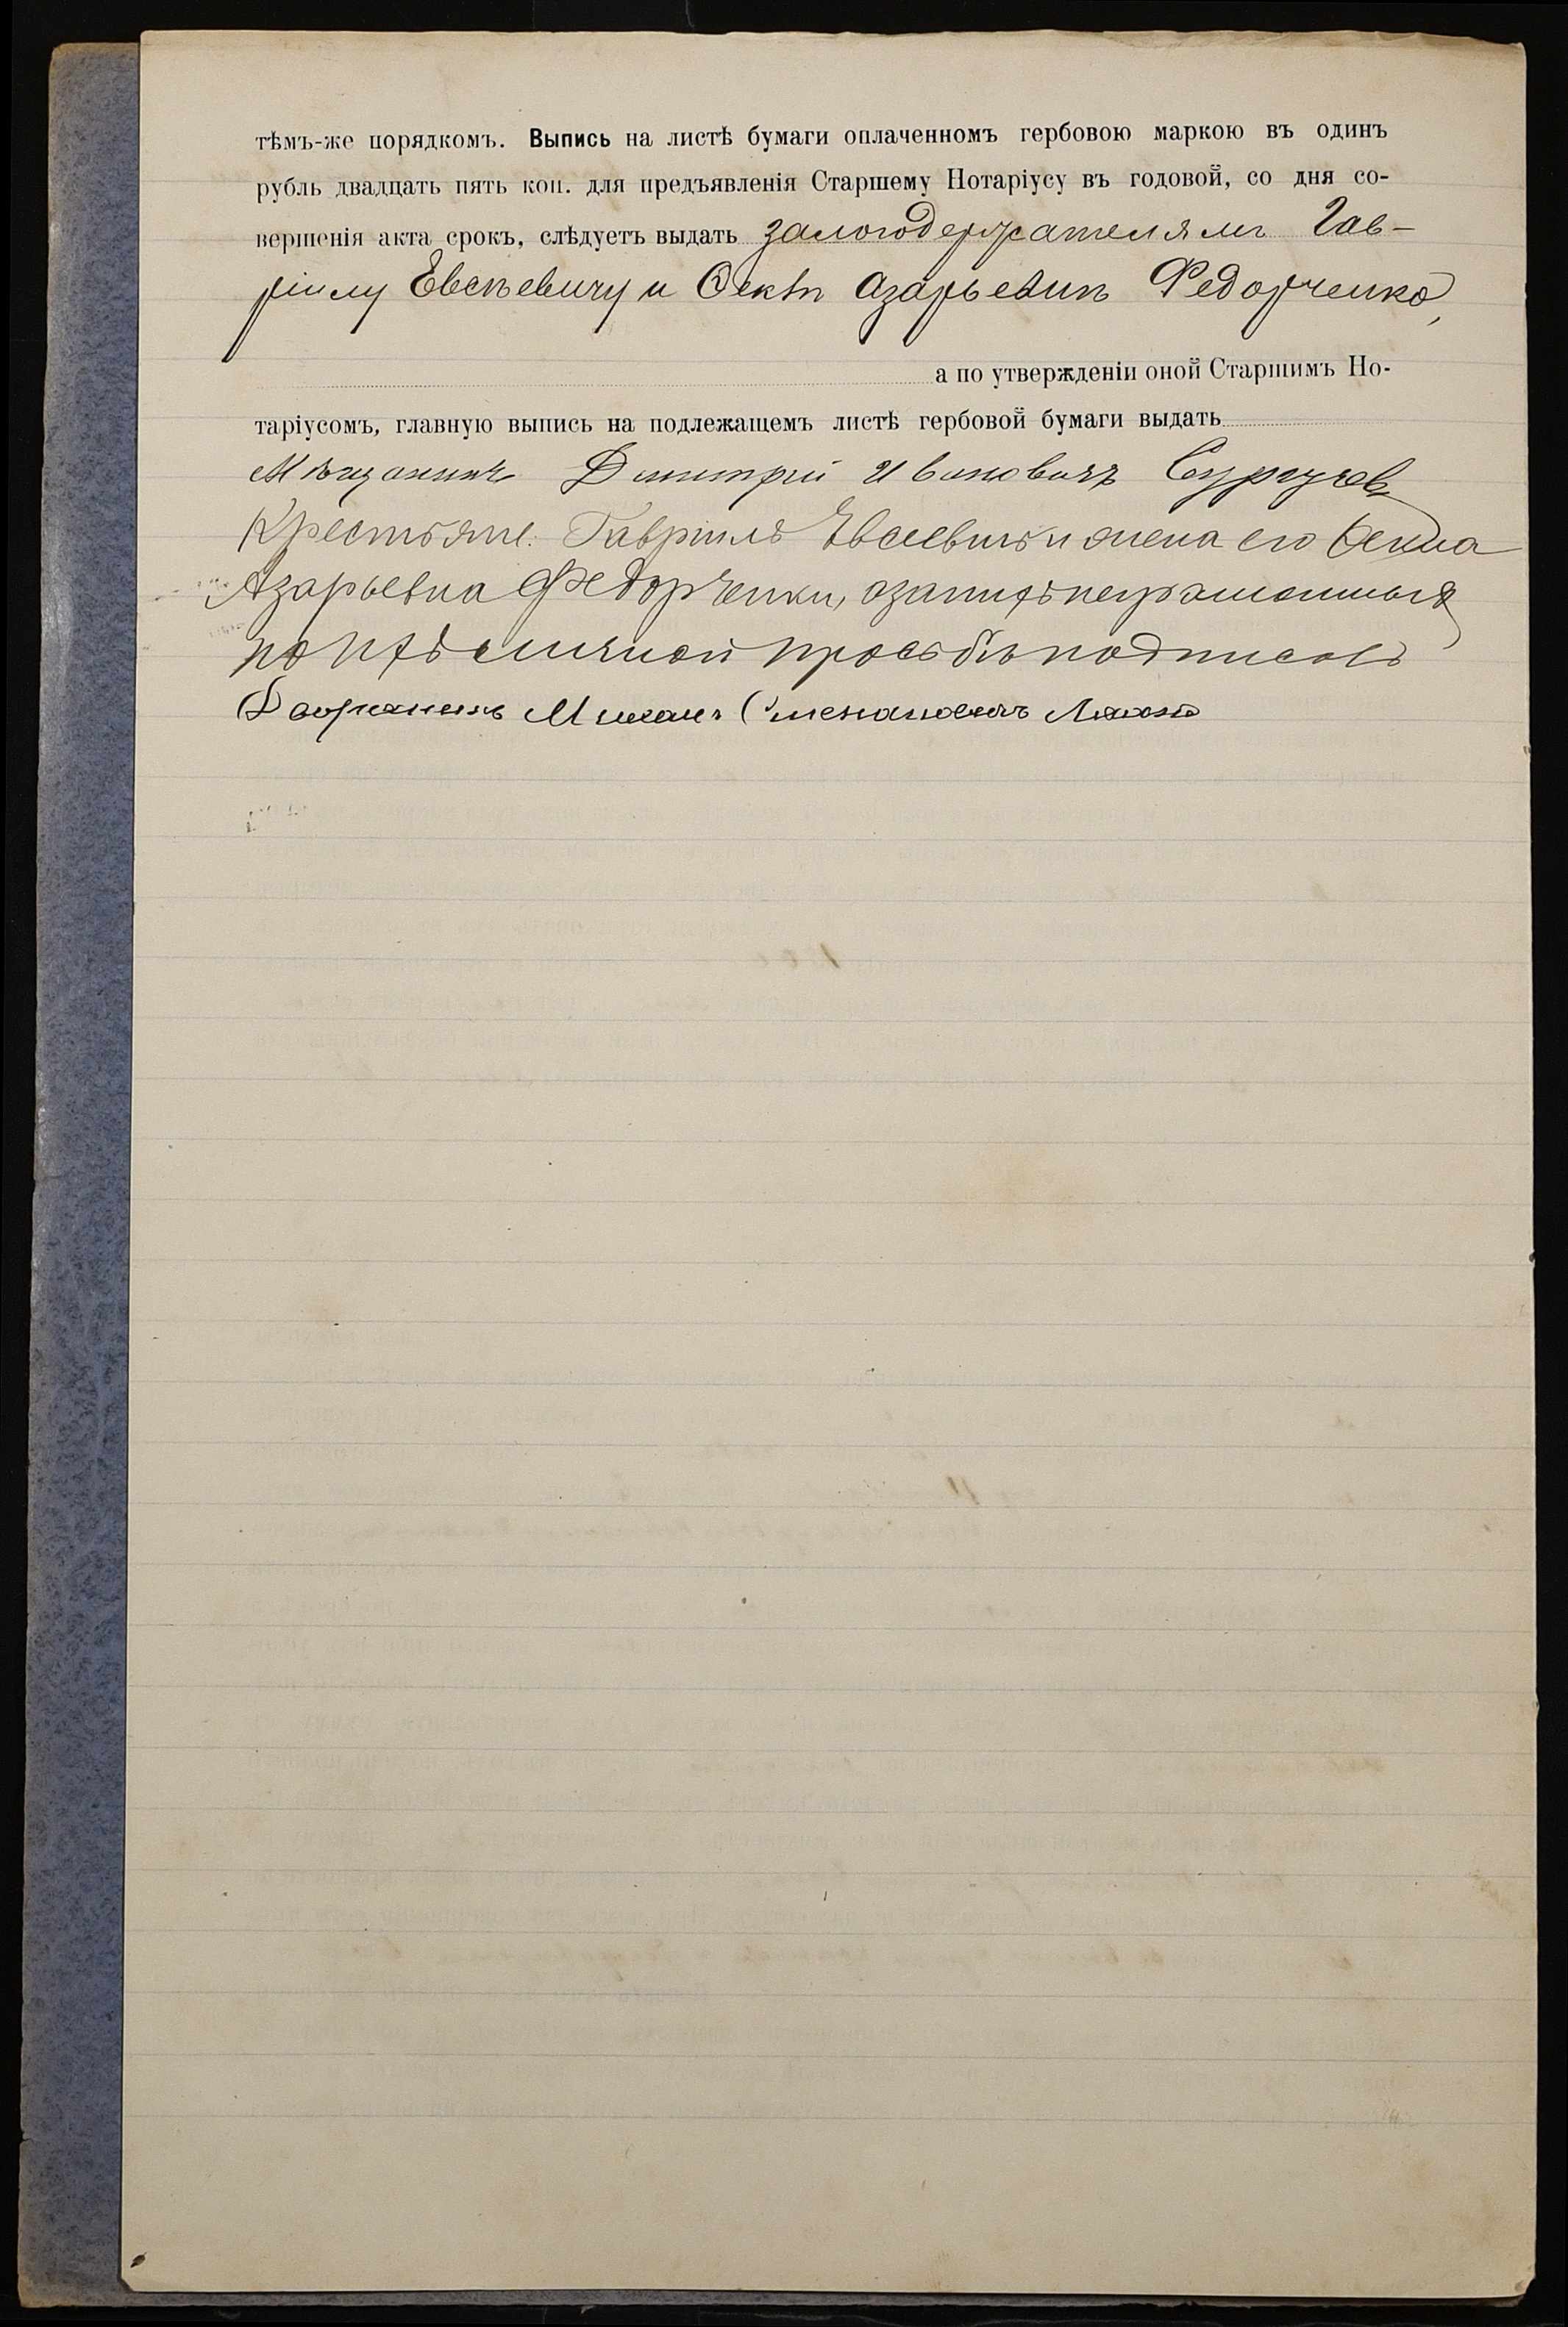 тѣмъ-же порядкомъ. Выпись на листѣ бумаги оплаченномъ гербовою маркою въ одинъ
рубль двадцать пять коп. для предъявленія Старшему Нотаріусу въ годовой, со дня со-
вершенія акта срокъ, слѣдуетъ выдать залогодержателямъ Гав-
ріилу Евсѣевичу и Ѳеклѣ Азарьевнѣ Федорченко,
а по утвержденіи оной Старшимъ Но-
таріусомъ, главную выпись на подлежащемъ листѣ гербовой бумаги выдать
Мѣщанинъ Дмитрій Ивановичъ Сургучевъ
Крестьяне: Гаврiилъ Евсеевичъ и жена его Ѳекла
Азарьевна Федорченки, а за нихъ неграмотныхъ
по ихъ личной просьбѣ подписалъ
Дворянинъ Михаилъ